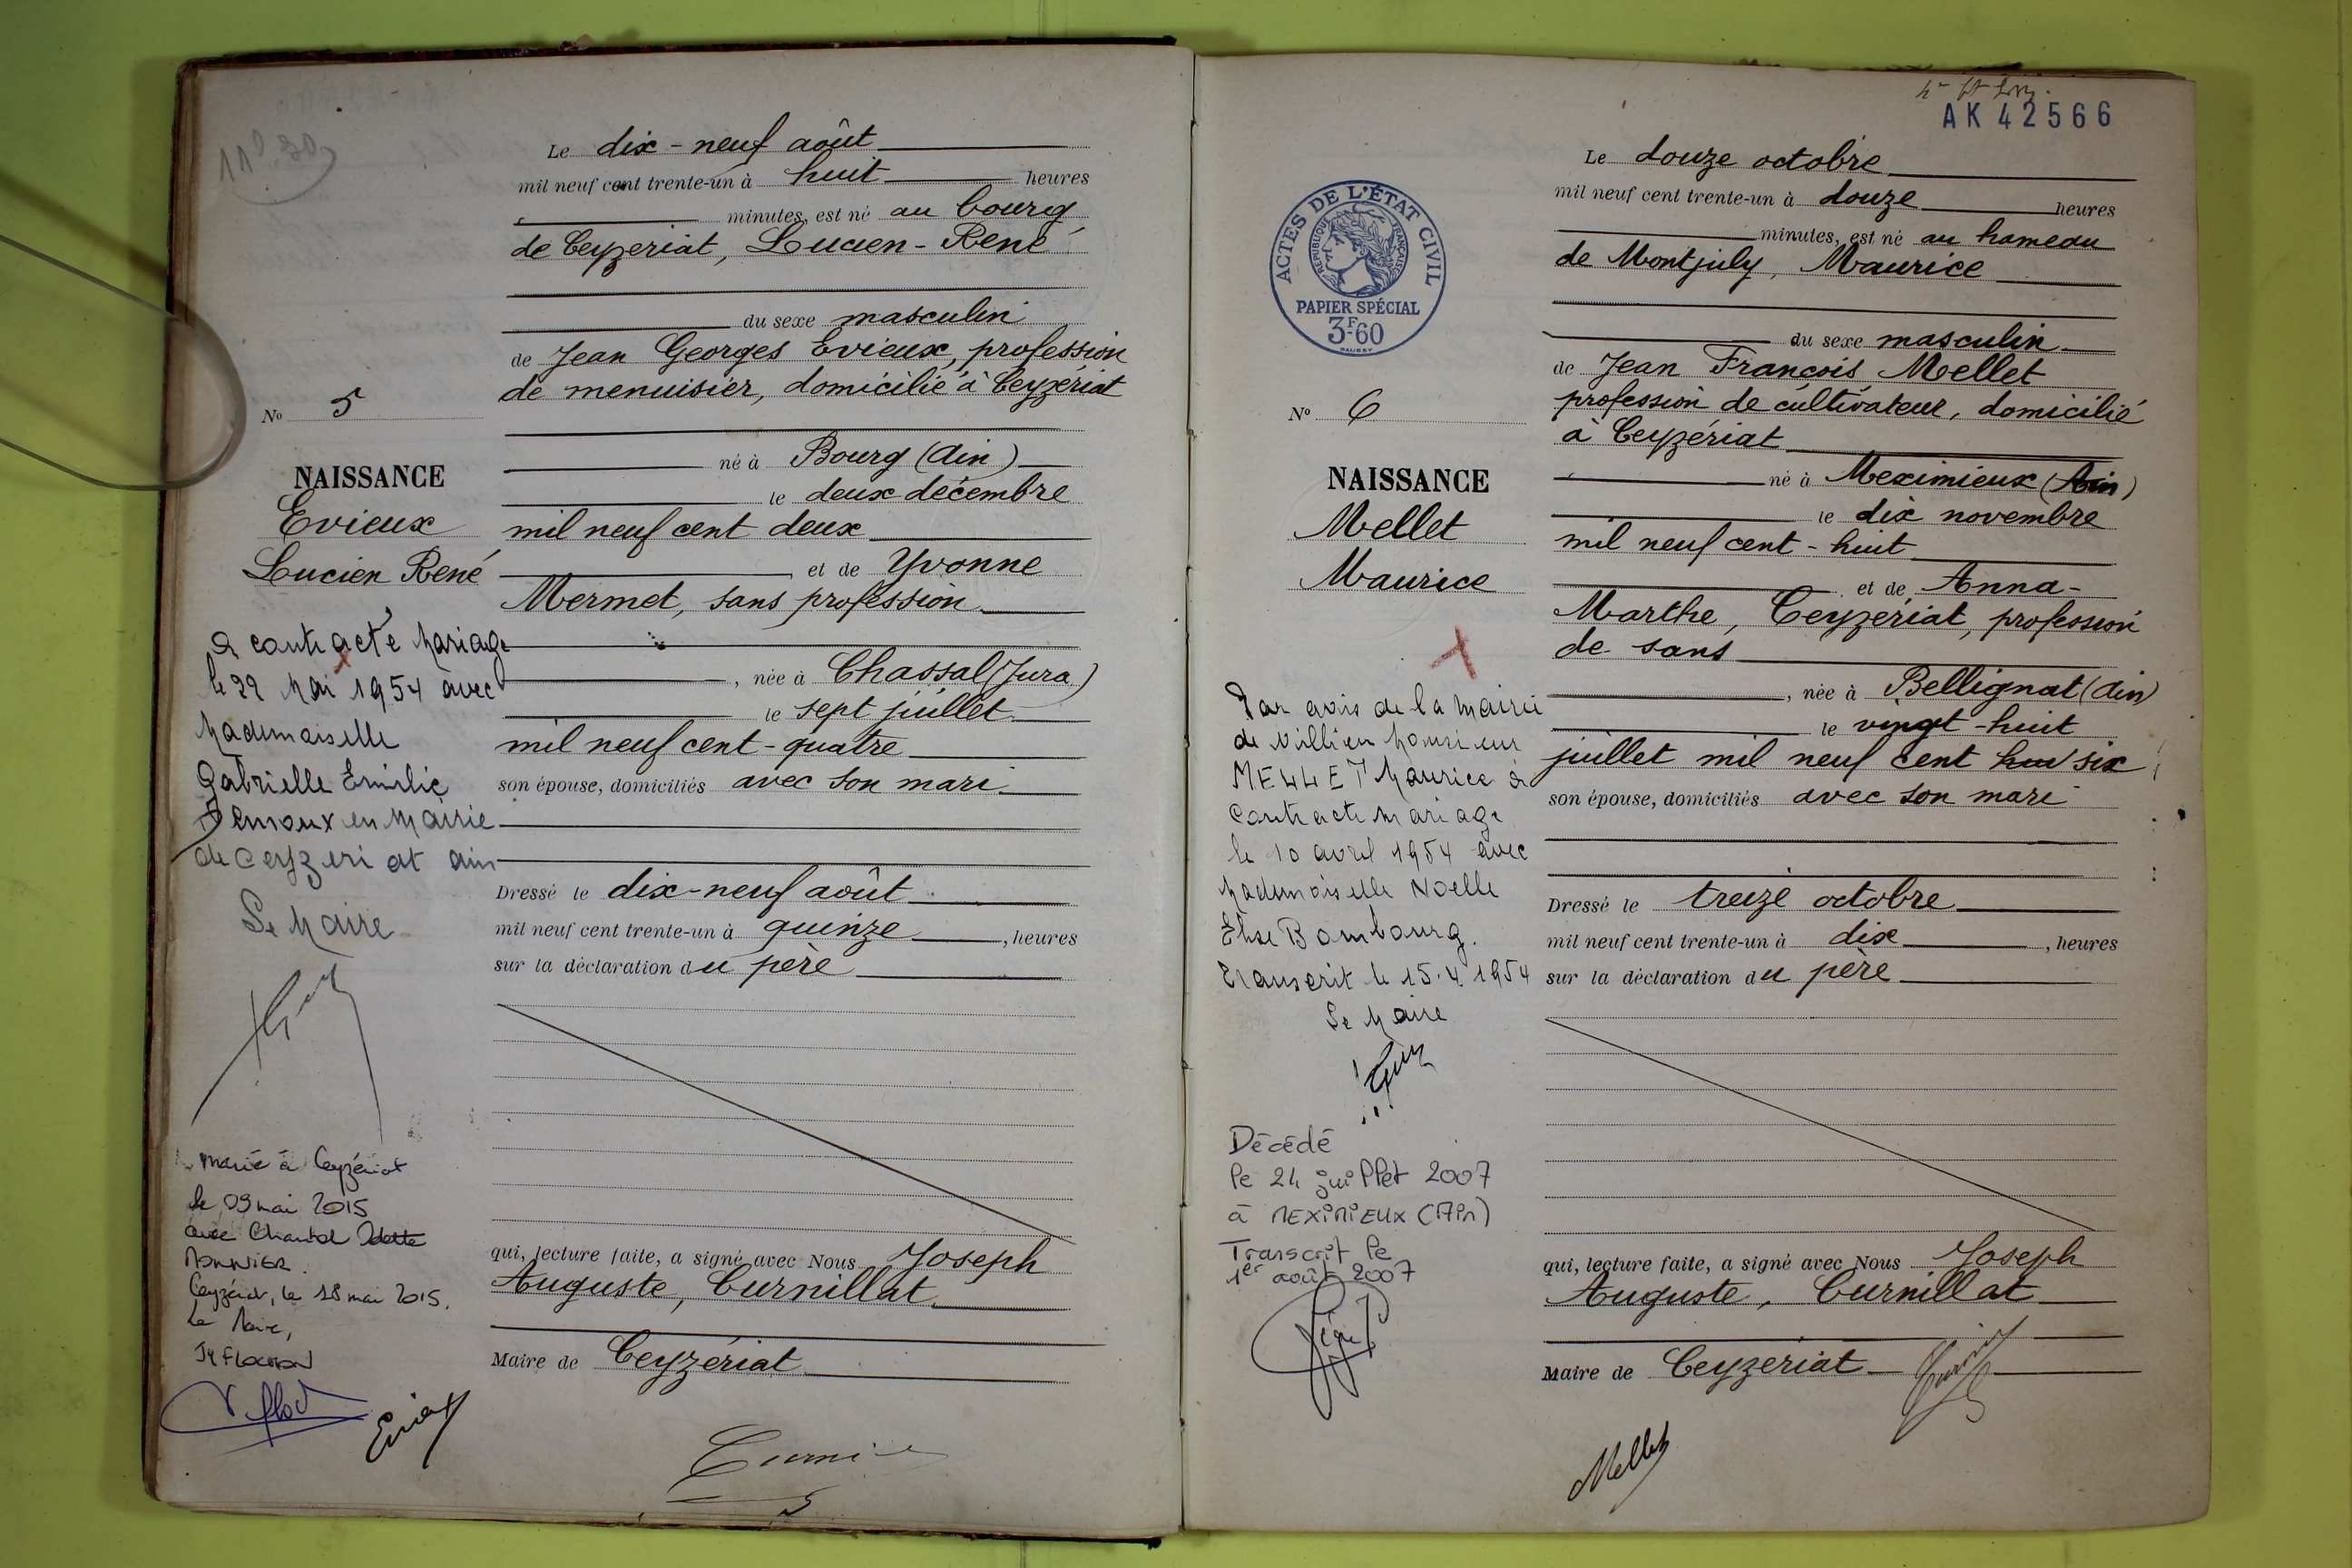 Le dix-neuf août
mil neuf cent trente-un à huit heures
minutes, est né au bourg
de Ceyzeriat, Lucien-René
du sexe masculin
de Jean Georges Evieux, profession
de menuisier, domicilié à Ceyzériat
né à Bourg (Ain)
le deux décembre
mil neuf cent deux
et de Yvonne
Mermet, sans profession
, née à Chassal (Jura)
le sept juillet
mil neuf cent-quatre
son épouse, domiciliés avec son mari
Dressé le dix-neuf août
mil neuf cent trente-un à quinze, heures
sur la déclaration du père
qui, lecture faite, a signé avec Nous Joseph
Auguste, Curnillat
Maire de Ceyzériat
No 5
NAISSANCE
Evieux
Lucien René
a contracté Mariage
le 22 Mai 1954 avec
Mademoiselle
Gabrielle Emilie
en Mairie
de Ceyzeriat ain
Le Maire
marié à Ceyzériat
le 09 mai 2015
avec Chantal Odette
MONNIER.
Ceyzériat, le 18 mai 2015.
Le Maire,
Evieux
AK 42566
Le douze octobre
mil neuf cent trente-un à douze heures
minutes, est né au hameau
de Montjuly, Maurice
du sexe masculin
de Jean François Mellet
profession de cultivateur, domicilié
à Ceyzériat
né à Meximieux (Ain)
le dix novembre
mil neuf cent-huit
et de Anna-
Marthe, Ceyzériat, profession
de sans
, née à Bellignat (Ain)
le vingt-huit
juillet mil neuf cent six
son épouse, domiciliés avec son mari
Dressé le treize octobre
mil neuf cent trente-un à dix, heures
sur la déclaration du père
qui, lecture faite, a signé avec Nous Joseph
Auguste, Curnillat
Maire de Ceyzeriat
Mellet
ACTES DE L'ÉTAT CIVIL
RÉPUBLIQUE FRANÇAISE
PAPIER SPÉCIAL
3F-60
No 6
NAISSANCE
Mellet
Maurice
Par avis de la Mairie
de Villieu Monsieur
MELLET Maurice a
contracté mariage
le 10 avril 1954 avec
Mademoiselle Noelle
Elise Bombourg.
Transcrit le 15.4.1954
Le Maire
Décédé
le 24 juillet 2007
à MEXIMIEUX (Ain)
Transcrit le
1er août 2007